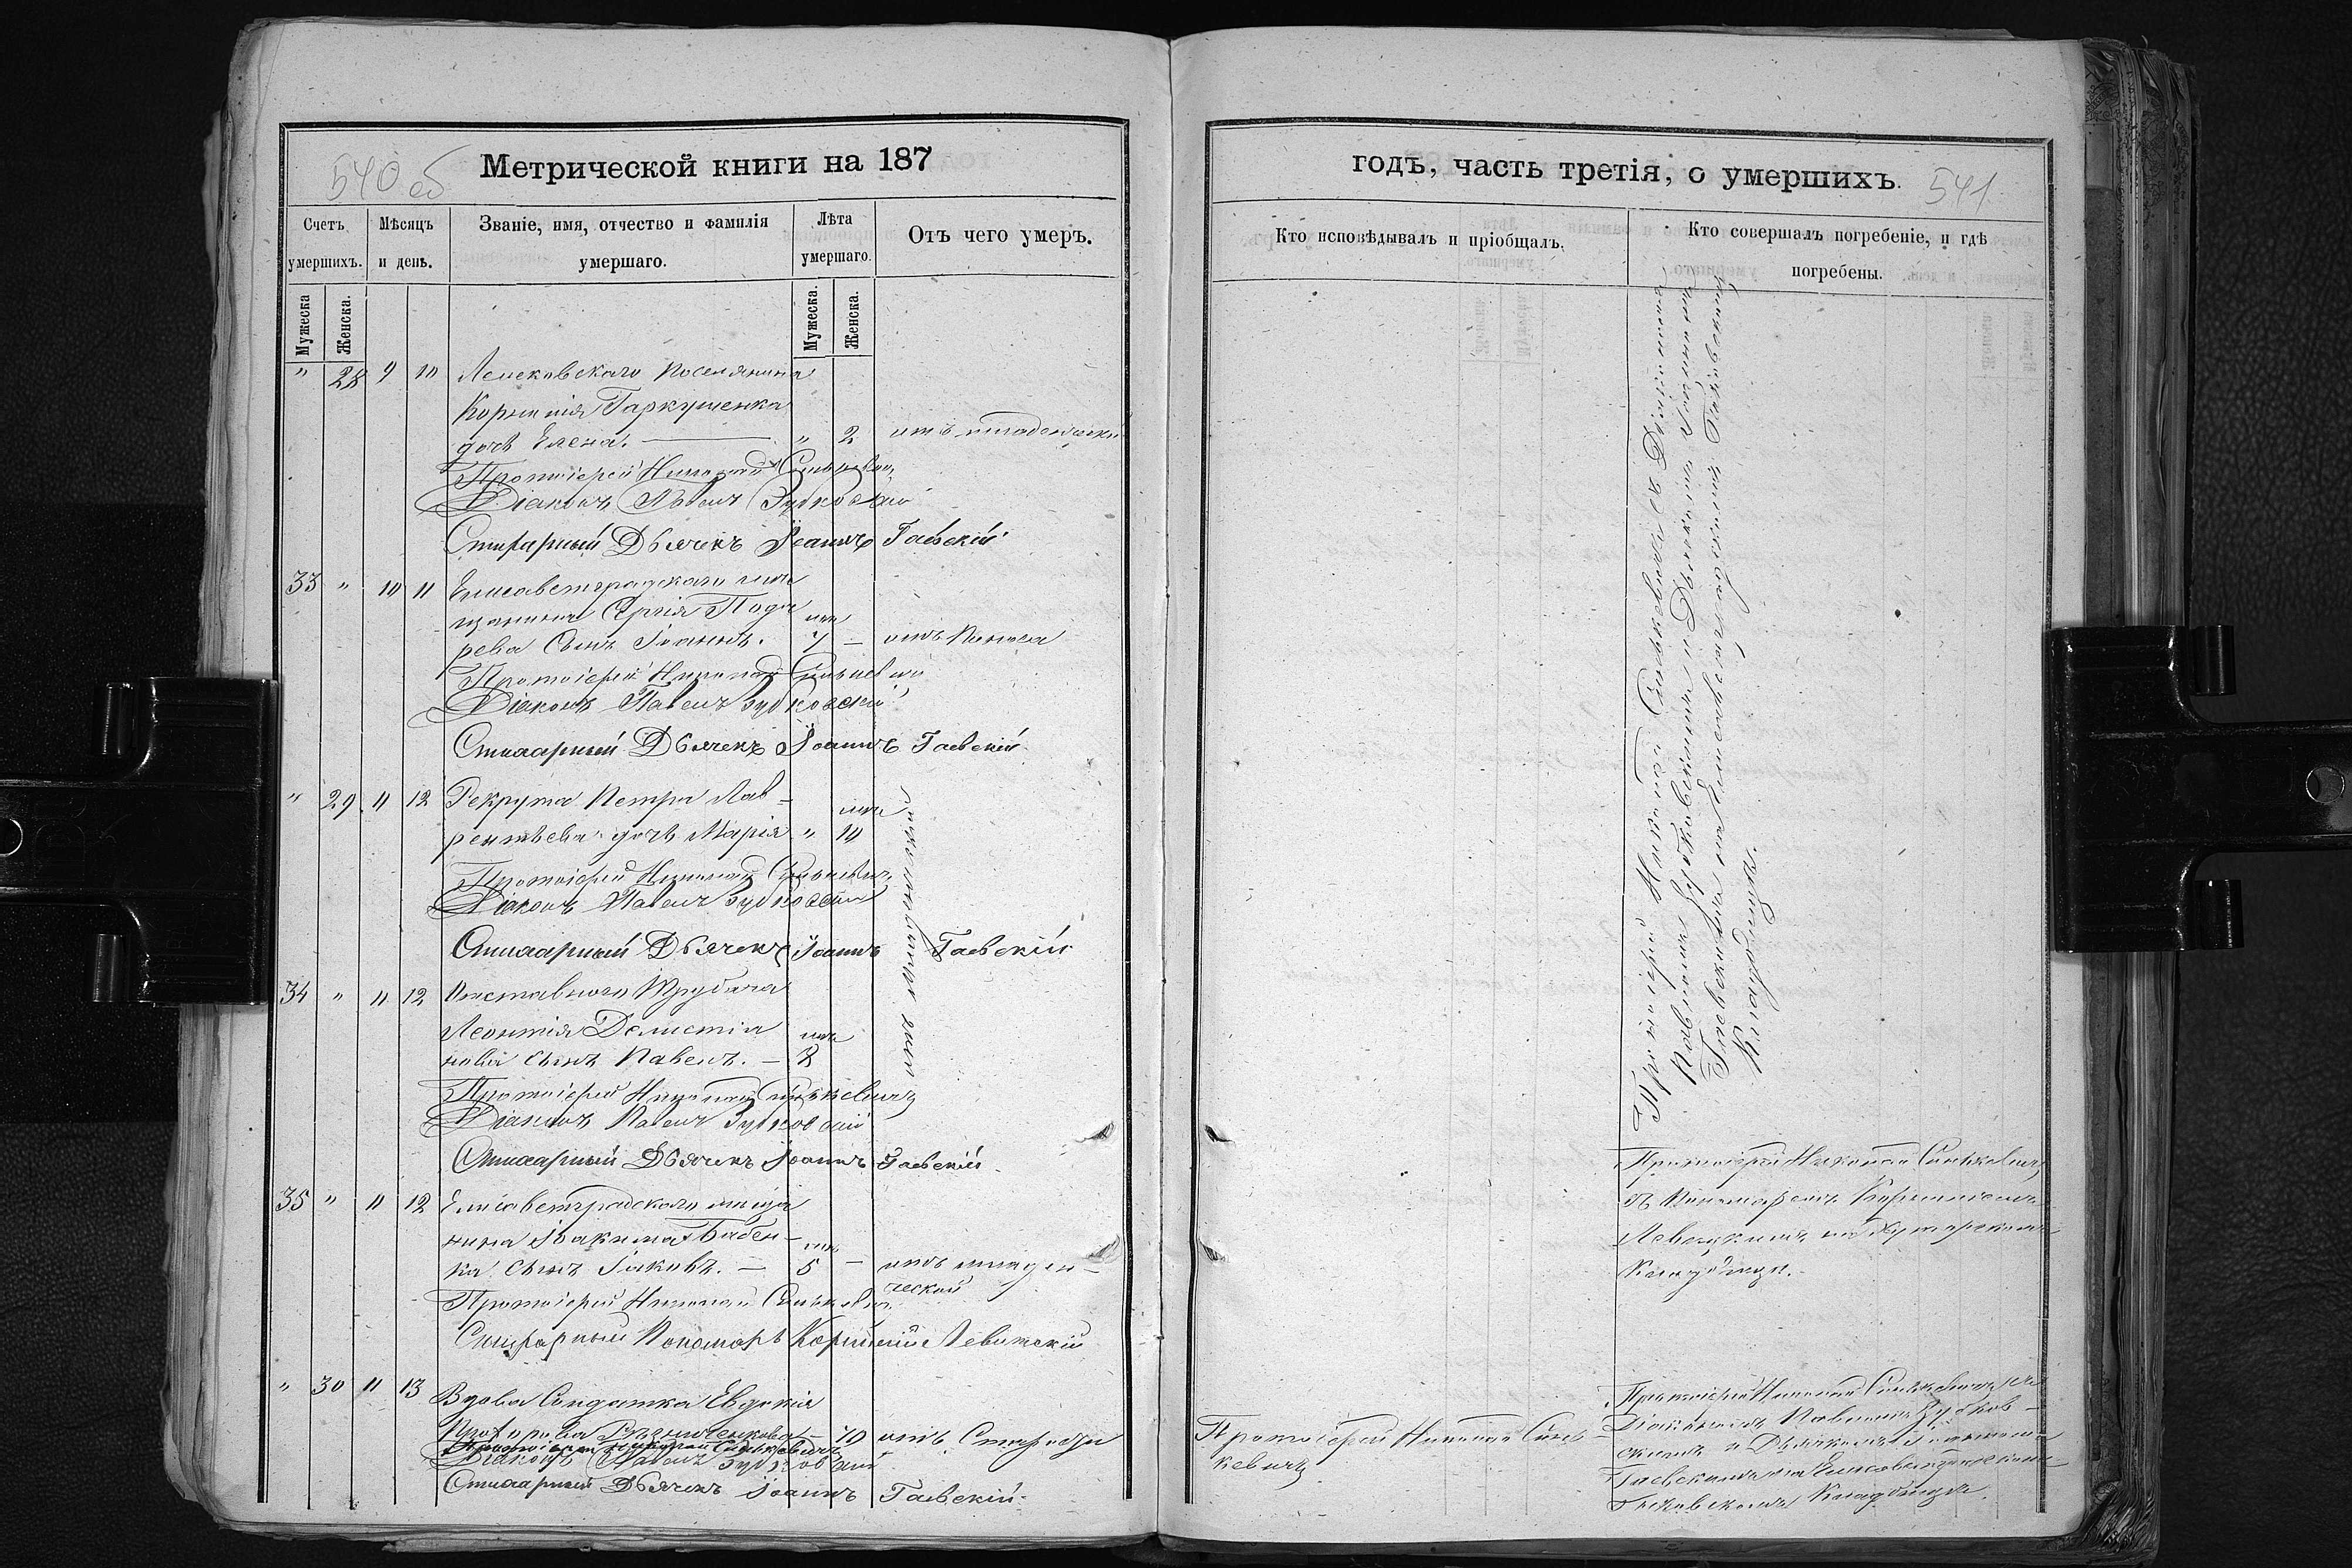 540 об
Метрической книги на 187
Счетъ умершихъ.
Мѣсяцъ и день.
Званіе, имя, отчество и фамилія умершаго.
Лѣта умершаго.
Отъ чего умеръ.
Мужеска
Женска.
Мужеска.
Женска.
" 28 9 10 Лелековскаго поселянина
Корнилія Гаркушенка
дочь Елена. " 2
Протоіерей Николай Синькевич
Діаконъ Павелъ Зубковскій
Стихарный Дьячекъ Іоаннъ Гаевскій
33 " 10 11 Елисаветградскаго мѣ
щанина Сергія Пода
рева Сынъ Іоаннъ. 7 – отъ поноса
Протоіерей Николай Синькевич
Діаконъ Павелъ Зубковскій
Стихарный Дьячекъ Іоаннъ Гаевскій
" 29 11 12 Рекрута Петра Лав-
рентьева дочь Марія " 10
Протоіерей Николай Синькевич
Діаконъ Павелъ Зубковскій
Стихарный Дьячекъ Іоаннъ Гаевскій
34 " 11 12 Отставнаго
Леонтія
нова сынъ Павелъ. – 8
Протоіерей Николай Синькевичъ
Діаконъ Павелъ Зубковскій
Стихарный Дьячекъ Іоаннъ Гаевскій
35 " 11 12 Елисаветградскаго мѣща
нина Іоакима Бабен-
ка сынъ Іаковъ. – 5 – отъ младен-
ческой
Протоіерей Николай Синькевич
Стихарный Пономарь Корнилій Левитскій
" 30 11 13 Вдова Солдатка Евдокія
– 70 отъ Старости
Протоіерей Николай Синькевичъ
Діаконъ Павелъ Зубковскій
Стихарный Дьячекъ Іоаннъ Гаевскій
годъ, часть третія, о умершихъ.
541
Кто исповѣдывалъ и пріобщалъ.
Кто совершалъ погребеніе, и гдѣ погребены.
Протоіерей Николай Синькевичъ съ Діакономъ
Павломъ Зубковскимъ и Дьячкомъ Іоанномъ
Гаевскимъ на
Кладбищѣ.
Протоіерей Николай Синькевичъ
съ Пономаремъ Корниліемъ
Левицкимъ на Хуторскомъ
Кладбищѣ.
Протоіерей Николай Синь-
кевичъ
Протоіерей Николай Синькевичъ съ
Діакономъ Павломъ Зубков-
скимъ и Дьячкомъ Іоанномъ
Гаевскимъ на
Кладбищѣ.